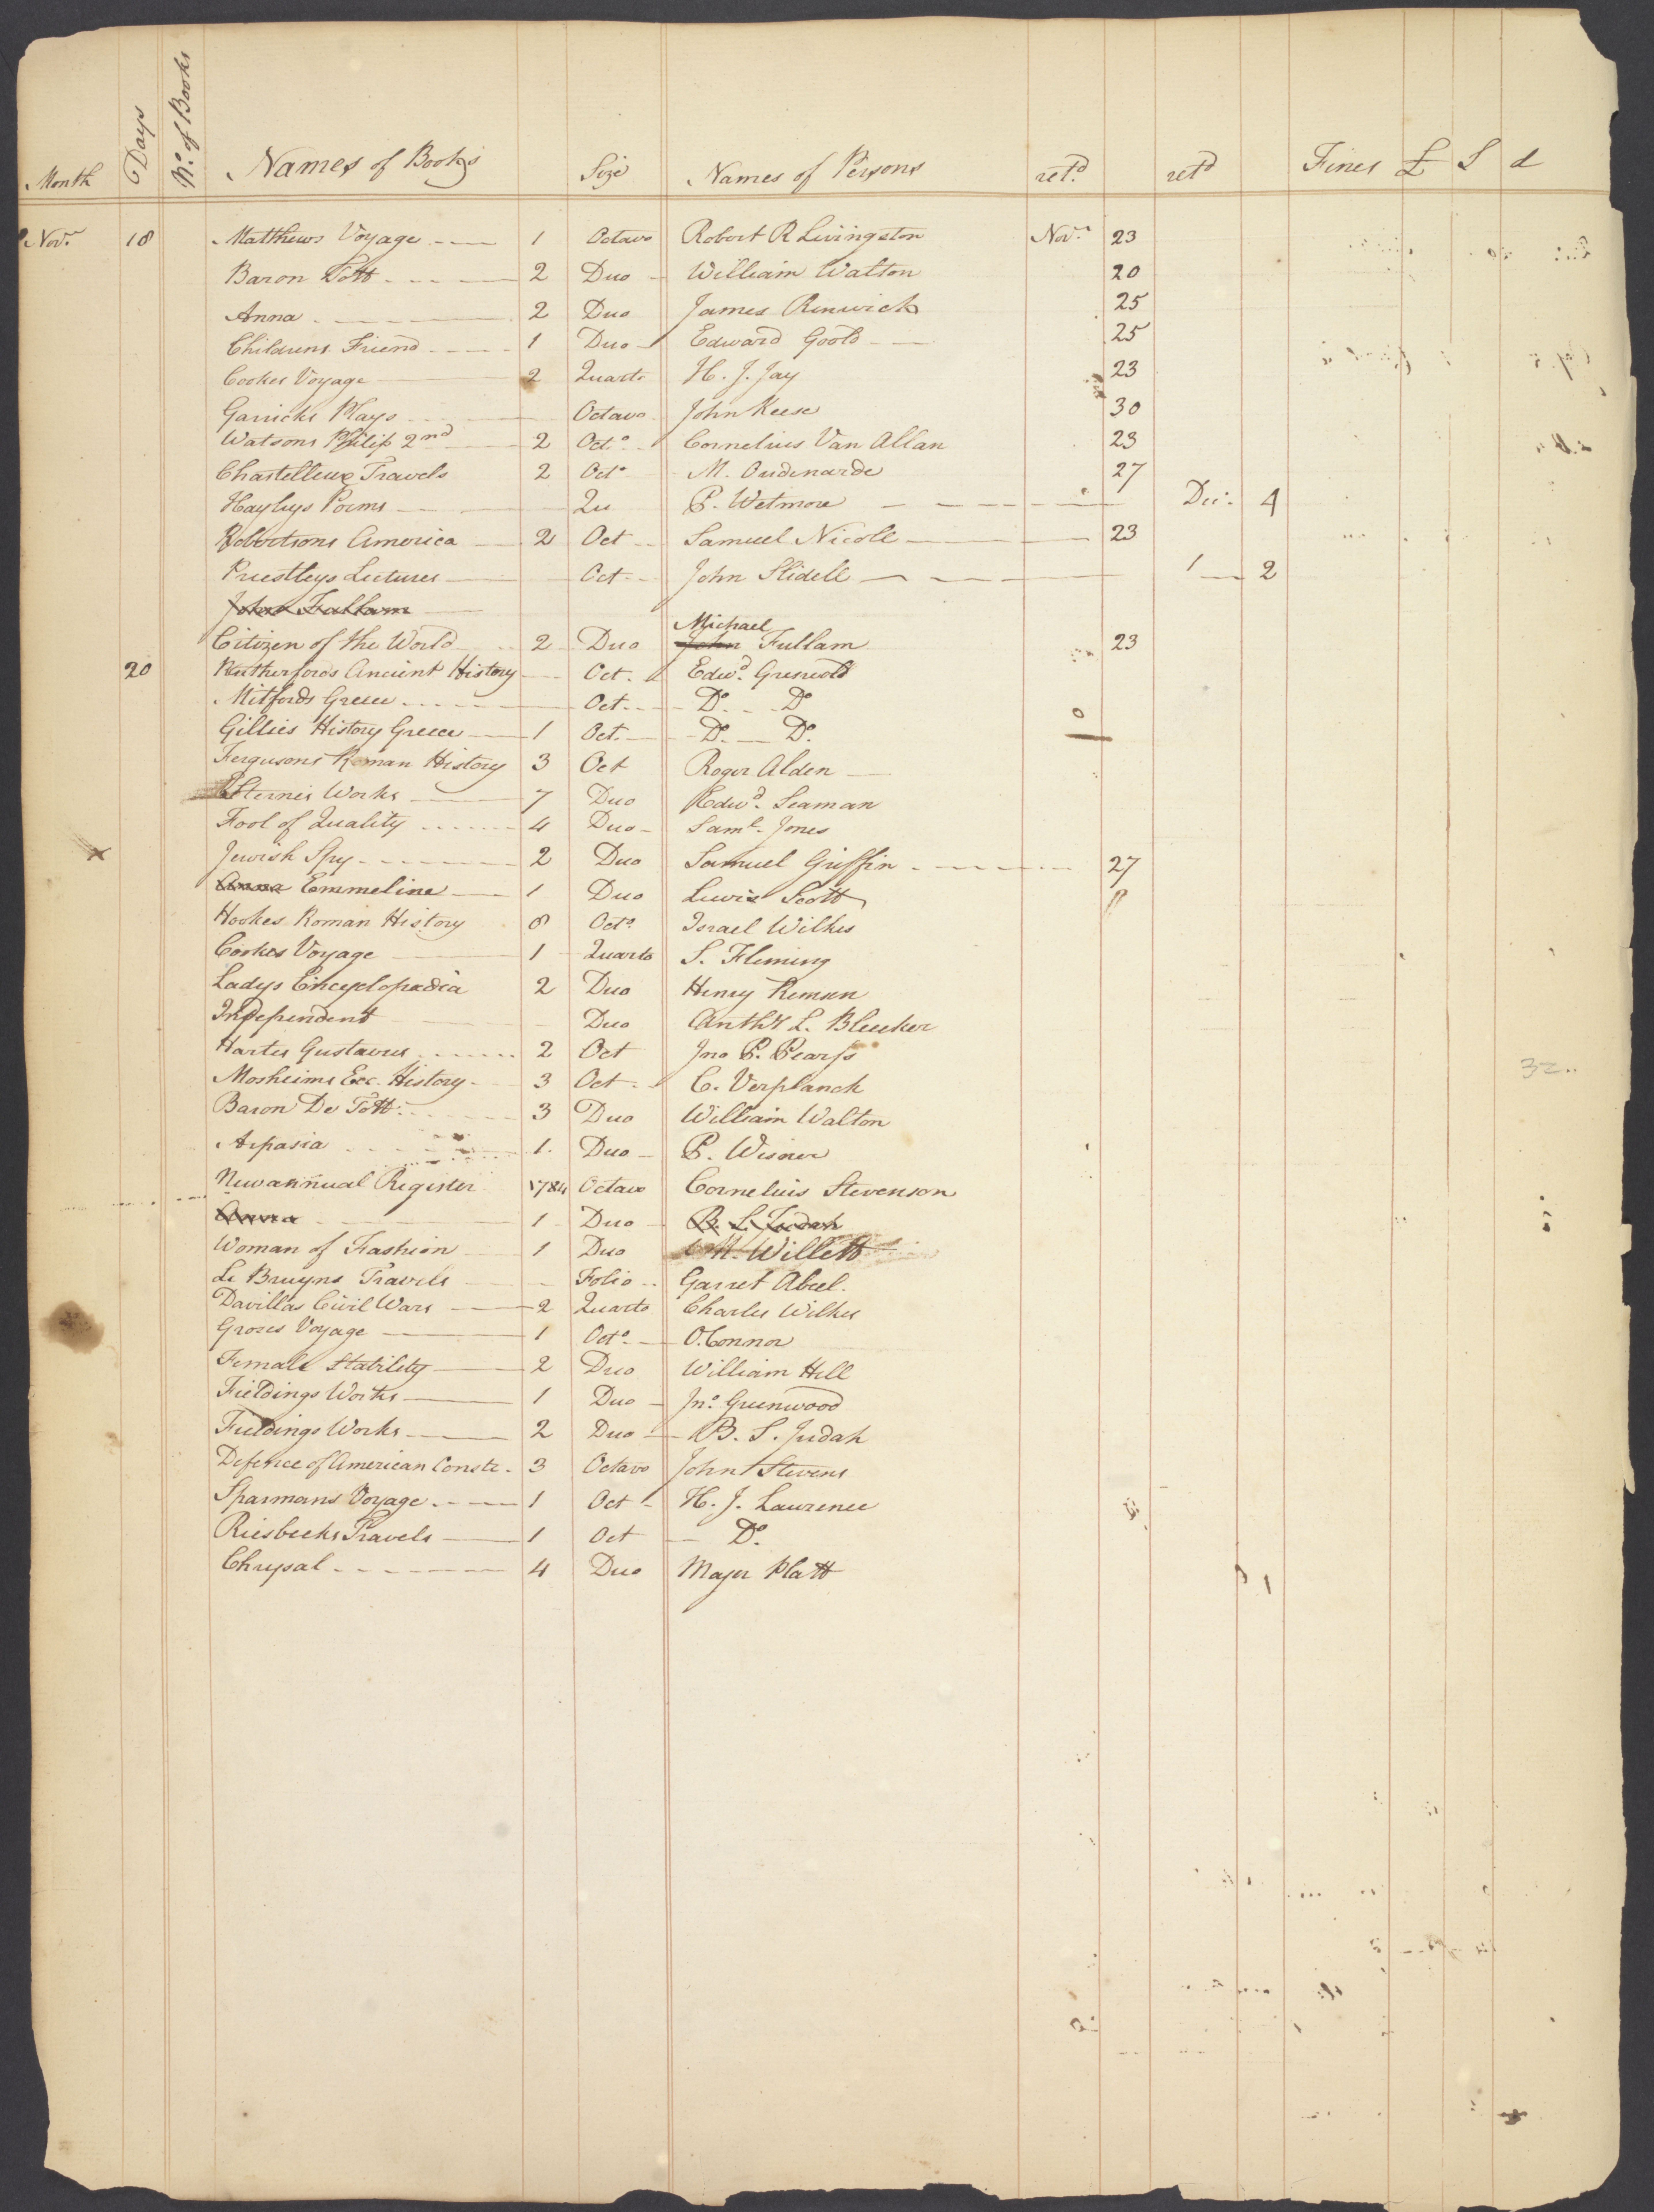 Month Days No. of Books Names of Books Size Names of Persons retd retd Fines £ S d
Novr. 18 Matthews Voyage 1 Octavo Robert R Livingston Novr. 23
Baron Tott 2 Duo William Walton 20
Anna 2 Duo James Renwick 25
Childrens Friend 1 Duo Edward Goold 25
Cookes Voyage 2 Quarto H. J. Jay 23
Garricks Plays Octavo John Keese 30
Watsons Philip 2nd 2 Octo. Cornelius Van Allan 23
Chastelleux Travels 2 Octo M. Oudenarde 27
Hayleys Poems Qu P. Wetmore Decr. 4
Robertsons America 2 Oct Samuel Nicoll 23
Priestleys Lectures Oct John Slidell 1 2
John Fullam
Michael
Citizen of the World 2 Duo John Fullam 23
20 Rutherfords Ancient History Oct. Edwd. Griswold
Mitfords Greece Oct. Do. Do
Gillies History Greece 1 Oct. Do. Do.
Fergusons Roman History 3 Oct Roger Alden
Sternes Works 7 Duo Edwd. Seaman
Fool of Quality 4 Duo Saml. Jones
x Jewish Spy 2 Duo Samuel Griffin 27
Anna Emmeline 1 Duo Lewis Scott
Hookes Roman History 8 Octo. Israel Wilkes
Cookes Voyage 1 Quarto S. Fleming
Ladys Encyclopædia 2 Duo Henry Remsen
Independent Duo Anthy L. Bleecker
Hartes Gustavus 2 Oct Jno P. Pearss
Mosheims Ecc. History 3 Oct C. Verplanck
Baron De Tott 3 Duo William Walton
Aspasia 1. Duo P. Wisner
New annual Register 1784 Octavo Cornelius Stevenson
Anna 1 Duo B. S. Judah
Woman of Fashion 1 Duo M. Willett
Le Bruyns Travels Folio Garret Abeel.
Davillas Civil Wars 2 Quarto Charles Wilkes
Groses Voyage 1 Octo. O.Connor
Female Stability 2 Duo William Hill
Fieldings Works 1 Duo Jno. Greenwood
Fieldings Works 2 Duo B. S. Judah
Defence of American Conste. 3 Octavo John Stevens
Sparmans Voyage 1 Oct H. J. Lawrence
Riesbecks Travels 1 Oct Do.
Chrysal 4 Duo Major Platt